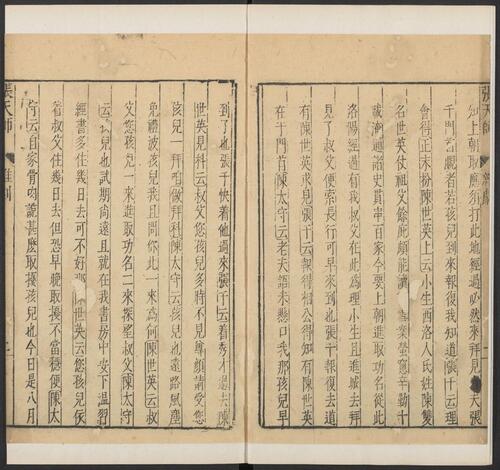 張天師 雜劇
如上朝取應須打此地經過必然來拜見天張
千門首覷者若孩兒到來報復我知道張千云理
會得正末扮陳世英上云小生西洛人氏姓陳雙
名世英仗祖父餘庇頗能讀書業螢窓辛勤十
載淹通諸史貫串百家今要上朝進取功名從此
洛陽經過有我叔父在此為理小生且進城去拜
見了叔父便索長行可早來到也張千報復去道
有陳世英求見張千云報得相公得知有陳世英
在于門首陳太守云老夫語未懸口我那孩兒早
到了也張千快着他過來張千云着秀才過去陳
世英見科云叔父您孩兒多時不見尊顔請受您
孩兒一拜咱做拜科陳太守云孩兒也遠路風塵
免禮波孩兒我且問你此一來為何陳世英云叔
父您孩兒一來進取功名二來探望叔父陳太守
云孩兒也試期尚遠且就在我書房中安下温習
經書多住幾日去可不好那陳世英云您孩兒依
着叔父住幾日去但恐早晚取擾不當穩便陳太
守云自家骨肉說甚麽取擾孩兒也今日是八月
張天師 雜劇